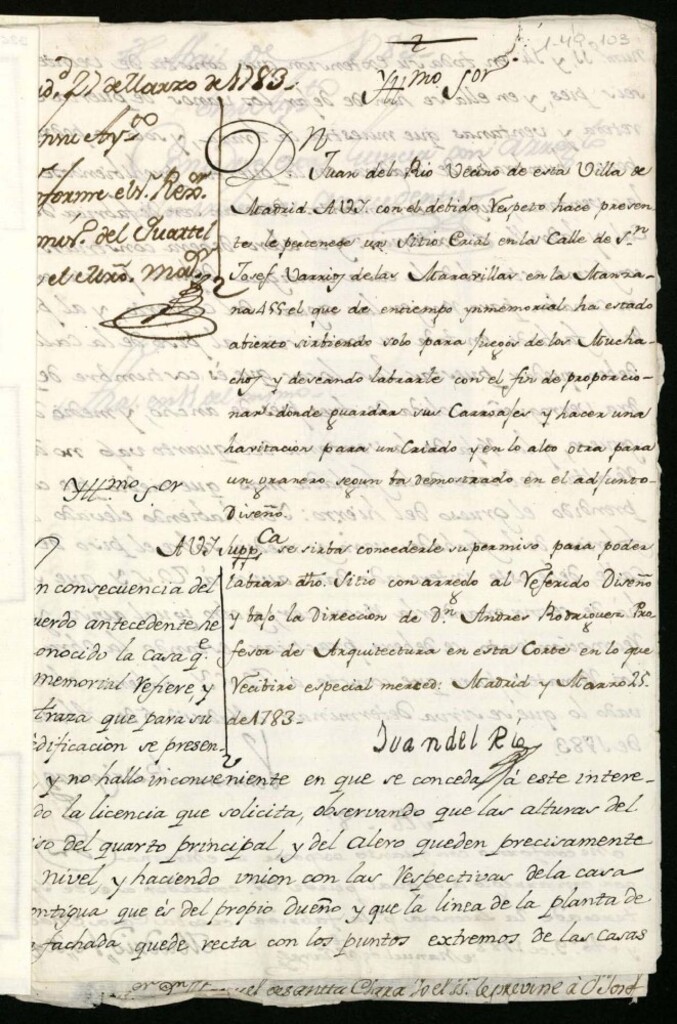 1-49-103
27 de Marzo de 1783.
En su Ayto
Informe el sr. Rexor
Comisº. del Quartel
y el Mrõ. Maor
Yllmo Sor
Dn Juan del Rio Vecino de esta Villa de
Madrid A VSY. con el debido Respeto hace presen-
te le pertenece un Sitio Erial en la Calle de Sn
Josef Varrio de las Maravillas en la Manza-
na 455 el que de entiempo ynmemorial ha estado
abierto sirbiendo solo para Juegos de los Mucha-
chos y deseando labrarle con el fin de proporcio-
nar donde guardar sus Carroajes y hacer una
havitacion para un Criado y en lo alto otra para
un granero segun ba demostrado en el adjunto
Diseño.
A VSY. suppca se sirba concederle su permiso para poder
labrar dho. Sitio con arreglo al Referido Diseño
y bajo la Direccion de Dn Andres Rodriguez Pro-
fesor de Arquitectura en esta Corte en lo que
Recibirá especial merced: Madrid y Marzo 25
de 1783-
Juan del Rio
Yllmo Sor
n consecuencia del
uerdo antecedente he
onocido la casa qe
memorial Refiere, y
traza que para su
dificacion se presen-
y no hallo inconveniente en que se conceda á este intere-
do la licencia que solicita, observando que las alturas del
iso del quarto principal, y del Alero queden precisamente
nivel, y haciendo union con las Respectivas de la casa
ontigua que és del propio dueño y que la linea de la planta de
fachada quede recta con los puntos extremos de las casas
el de santta Clara, lo el le previne à Dn Josef